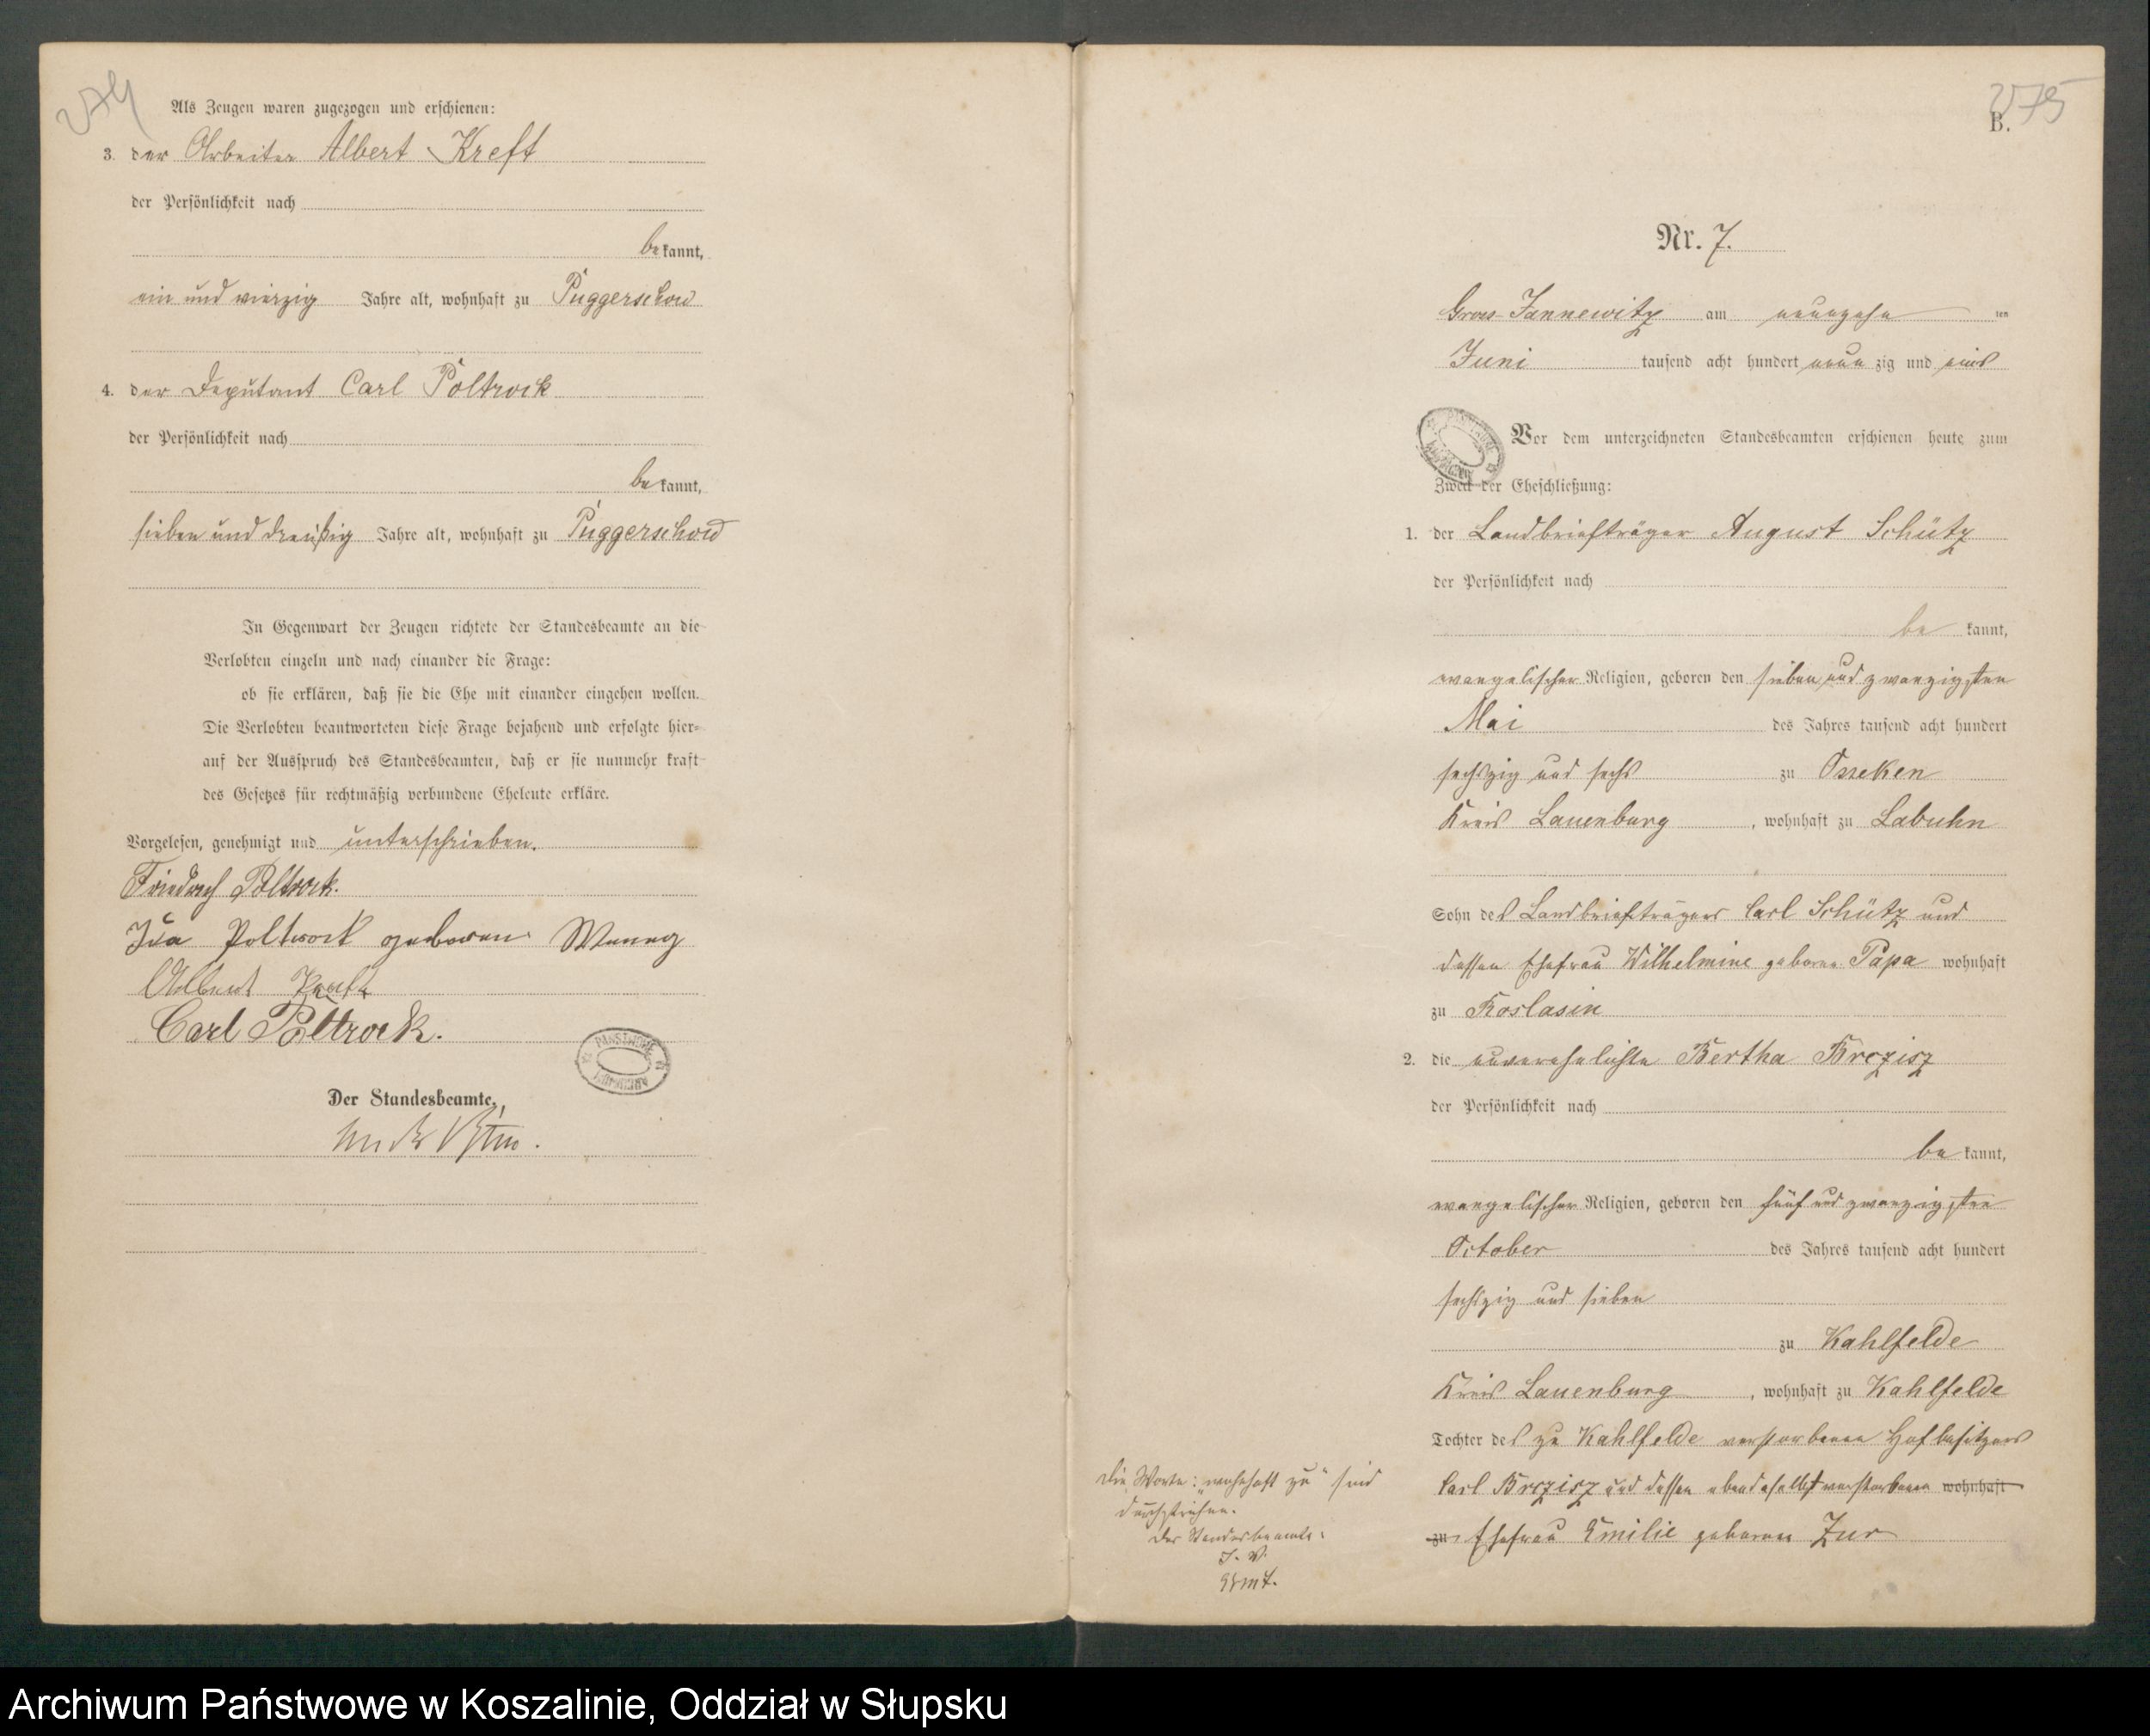 274
Als Zeugen waren zugezogen und erschienen:
3. der Arbeiter Albert Kreft
der Persönlichkeit nach
bekannt,
ein und vierzig Jahre alt, wohnhaft zu Puggerschow
4. der Deputant Carl Poltrock
der Persönlichkeit nach
bekannt,
sieben und dreißig Jahre alt, wohnhaft zu Puggerschow
In Gegenwart der Zeugen richtete der Standesbeamte an die
Verlobten einzeln und nach einander die Frage:
ob sie erklären, daß sie die Ehe mit einander eingehen wollen.
Die Verlobten beantworteten diese Frage bejahend und erfolgte hier-
auf der Ausspruch des Standesbeamten, daß er sie nunmehr kraft
des Gesetzes für rechtmäßig verbundene Eheleute erkläre.
Vorgelesen, genehmigt und unterschrieben.
Friedrich Poltrock.
Ida Poltrock geboren
Albert Kreft
Carl Poltrock.
PAŃSTWOWE ARCHIWUM
Der Standesbeamte,
275
B.
Nr. 7.
Gross-Jannewitz am neunzehn ten
Juni tausend acht hundert neun zig und eins
PAŃSTWOWE ARCHIWUM
Vor dem unterzeichneten Standesbeamten erschienen heute zum
Zweck der Eheschließung:
1. der Landbriefträger August Schütz
der Persönlichkeit nach
be kannt,
evangelischer Religion, geboren den sieben und zwanzigsten
Mai des Jahres tausend acht hundert
sechszig und sechs zu Osseken
Kreis Lauenburg, wohnhaft zu Labuhn
Sohn des Landbriefträgers Carl Schütz und
dessen Ehefrau Wilhelmine geboren Papa wohnhaft
zu Roslasin
2. die unverehelichte Bertha Brczisz
der Persönlichkeit nach
be kannt,
evangelischer Religion, geboren den fünf und zwanzigsten
October des Jahres tausend acht hundert
sechszig und sieben
zu Kahlfelde
Kreis Lauenburg, wohnhaft zu Kahlfelde
Tochter des zu Kahlfelde verstorbenen Hofbesitzers
Carl Brczisz und dessen ebendaselbst verstorbenen wohnhaft
zu Ehefrau Emilie geboren Zur
Die Worte: „wohnhaft zu" sind
durchstrichen.
Der Standesbeamte:
J. V.
Archiwum Państwowe w Koszalinie, Oddział w Słupsku